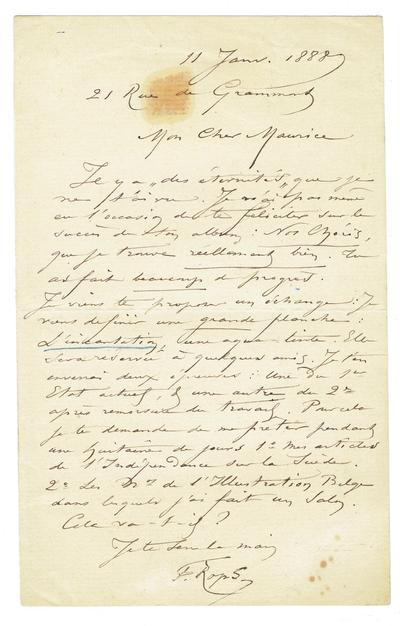 11 Janv. 1888
21 Rue de Grammont
Mon Cher Maurice
Il y a „des éternités" que je
ne t'ai vu. Je n'ai pas même
eu l'occasion de te féliciter sur le
succès de ton album : Nos
que je trouve réellement bien. Tu
as fait beaucoup de progrès.
Je viens te proposer un échange : Je
viens de finir une grande planche :
L'incantation, une aqua-tinte. Elle
sera réservée à quelques amis. Je t'en
enverai deux épreuves : Une du 1er
Etat actuel, & une autre du 2me
après remorsure du travail. Pour cela
je te demande de me prêter pendant
une huitaine de jours 1º mes articles
de l'Indépendance sur la Suède.
2º Les Nos de l'Illustration Belge
dans lesquels j'ai fait un Salon.
Cela va-t-il ?
Je te serre la main
F. Rops